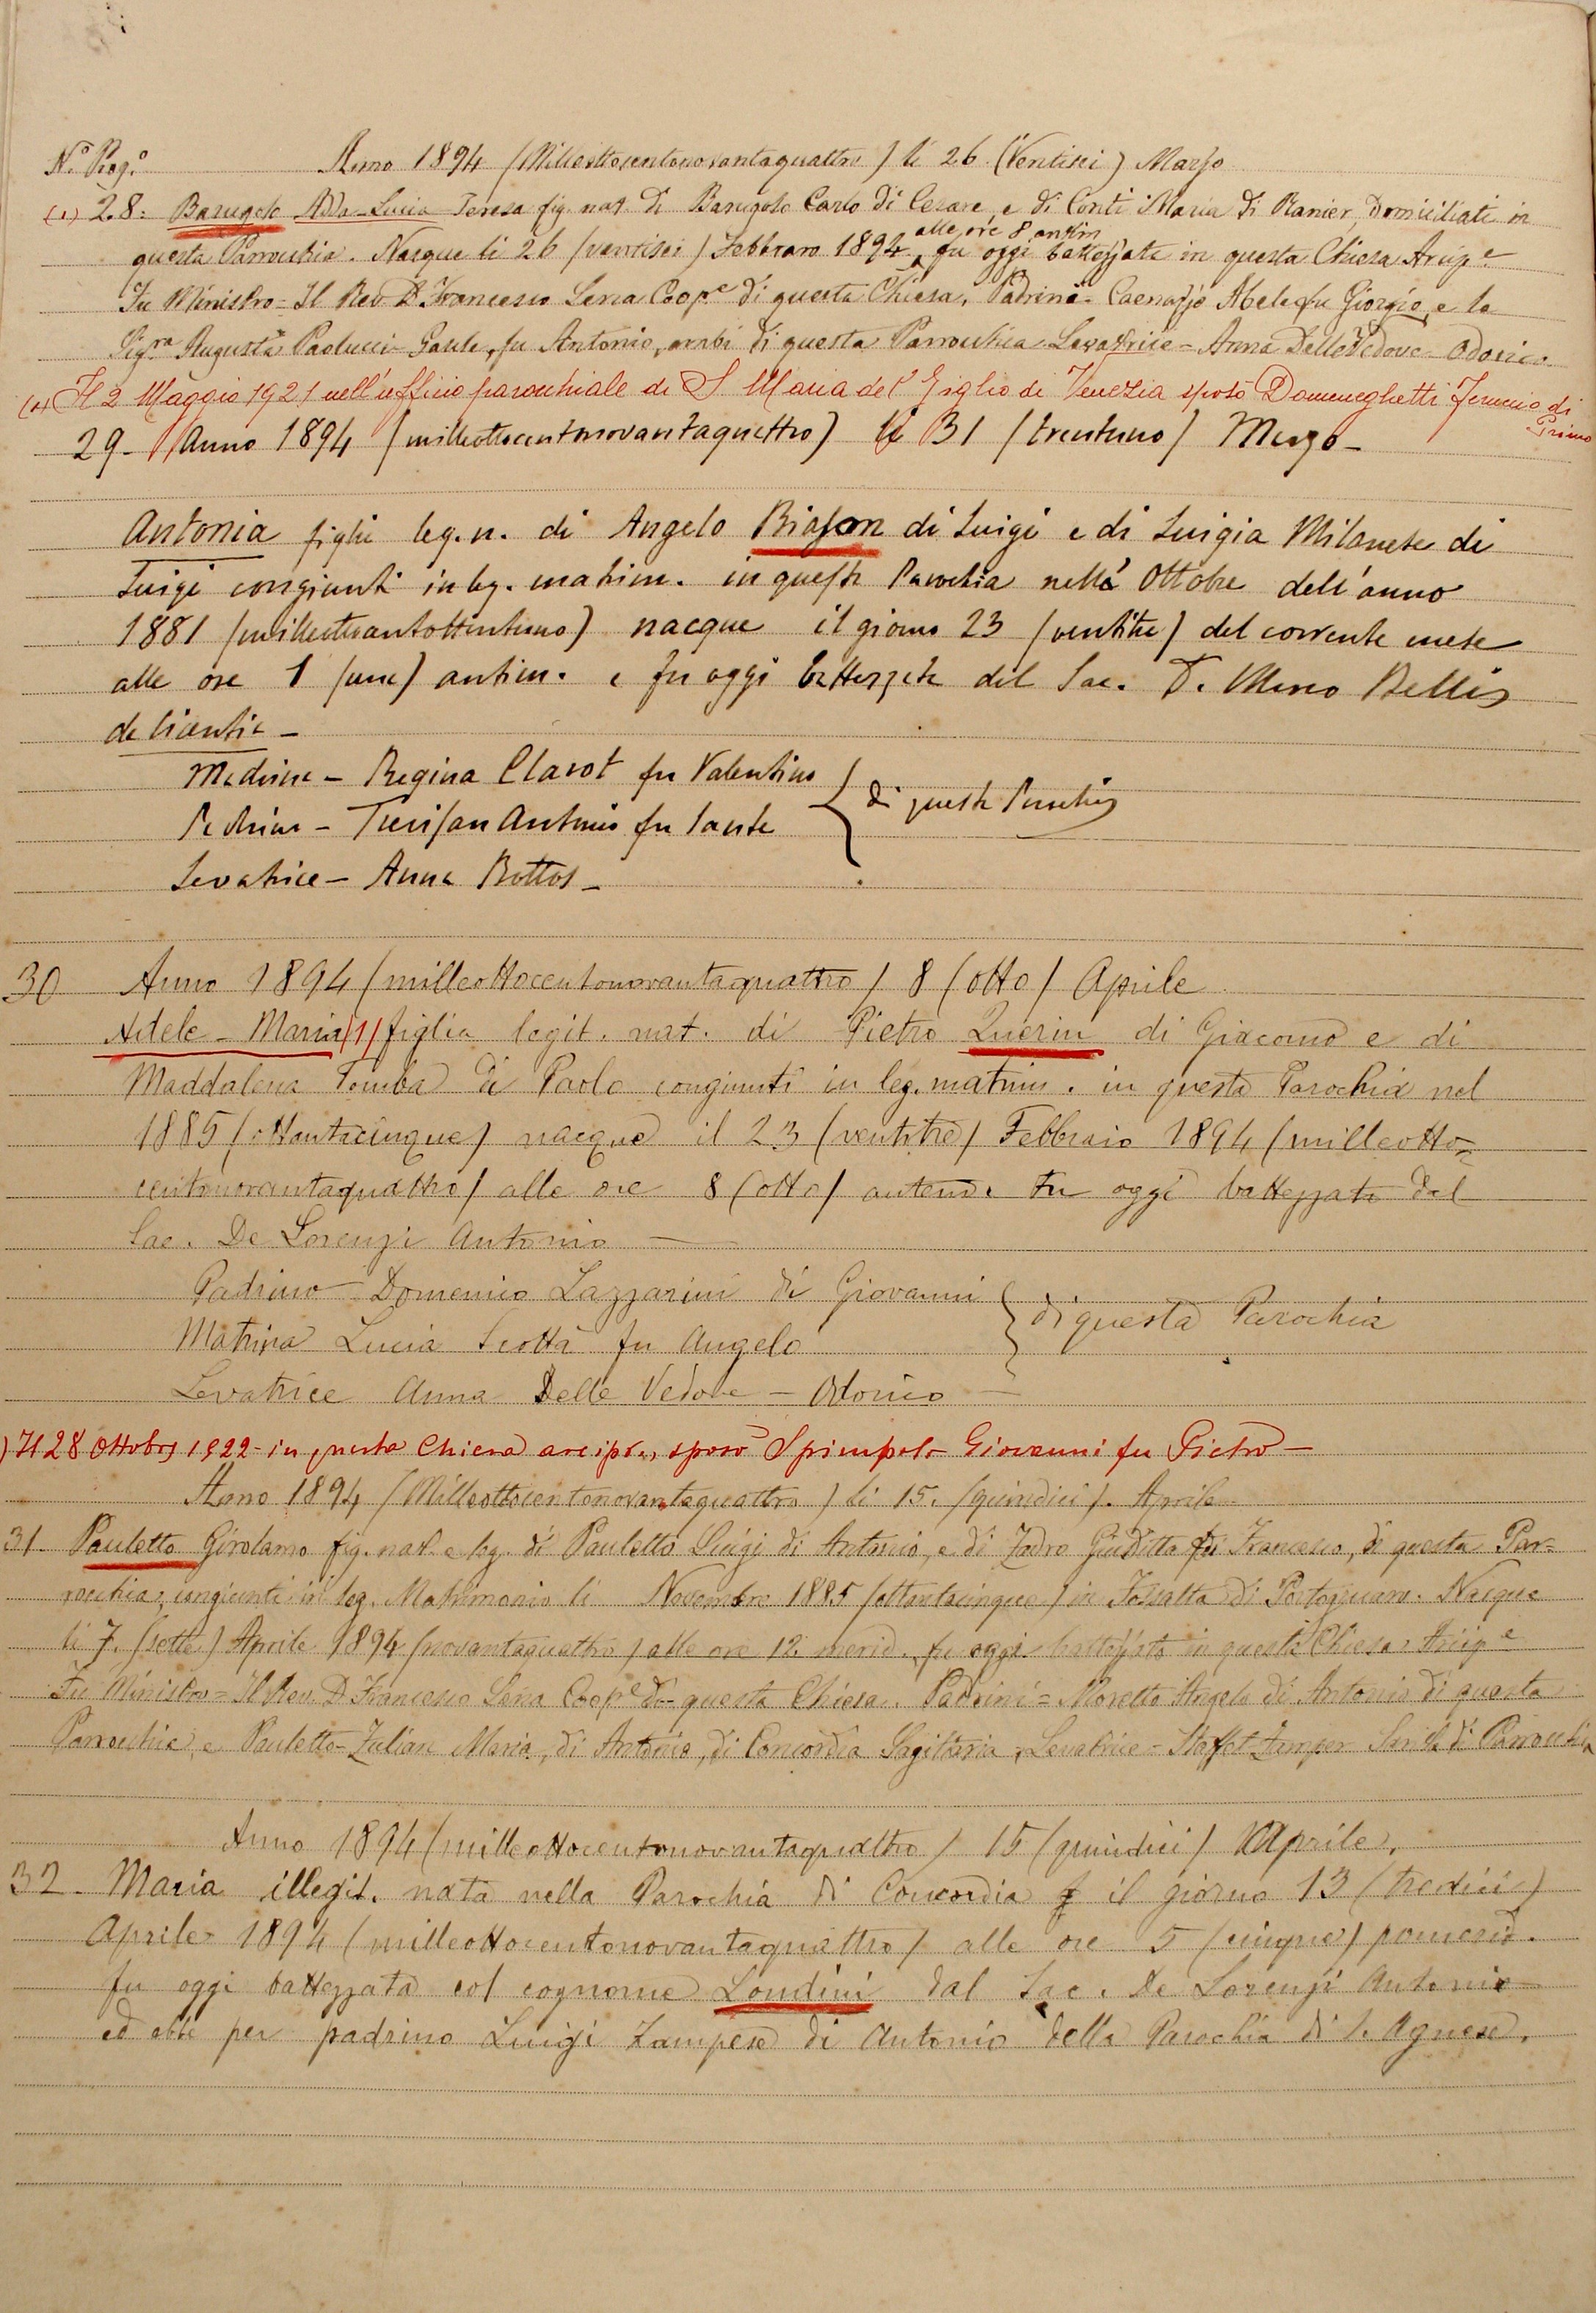 N.º Reg.º Anno 1894 (Milleottocentonovantaquattro) li 26 (Ventisei) Marzo
(1) 28: Barugolo Adda-Lucia Teresa fig. nat. di Barugolo Carlo di Cesare, e di Conti Maria di Ranier, Domiciliati in
questa Parrochia. Nacque li 26 (ventisei) Febbraro 1894 alle ore 8 antim fu oggi battezzata in questa Chiesa Arcip.e
Fu Ministro = Il Rev. D. Francesco Lena Coop.e di questa Chiesa. Padrini = Abele fu Giorgio, e la
Sig.ra Augusta Paolucci fu Antonio, ambi di questa Parrochia Levatrice = Anna Delle Vedove Odorico
(1) Il 2 Maggio 1921 nell'ufficio parochiale di S Maria del Giglio di Venezia sposò Domeneghetti di
Primo
29 - Anno 1894 (milleottocentonovantaquattro) li 31 (trentuno) Marzo -
Antonia figlia leg. n. di Angelo Biason di Luigi e di Luigia Milanese di
Luigi congiunti in leg. matrim. in questa Parochia nell' Ottobre dell'anno
1881 (milleottocentottantuno) nacque il giorno 23 (ventitre) del corrente mese
alle ore 1 (una) antim. e fu oggi battezzata dal Sac. D. Bellis
de licentia -
Madrina - Regina Clarot fu Valentino
Padrino - Trevisan Antonio fu Sante } di questa Parochia
Levatrice - Anna Bottos -
30 Anno 1894 (milleottocentonovantaquattro) 8 (otto) Aprile
Adele - Maria (1) figlia legit. nat. di Pietro Querin di Giacomo e di
Maddalena Tomba di Paolo congiunti in leg. matrim. in questa Parochia nel
1885 (ottantacinque) nacque il 23 (ventitre) Febbraio 1894 (milleotto=
centonovantaquattro) alle ore 8 (otto) antem. Fu oggi battezzata dal
Sac. De Lorenzi Antonio -
Padrino - Domenico Lazzarini di Giovanni
Matrina Lucia Scottà fu Angelo } di questa Parochia
Levatrice Anna Delle Vedove - Odorico -
) Il 28 Ottobre 1922 - in questa Chiesa arcipr., sposò Spimpolo Giovanni fu Pietro -
Anno 1894 (Milleottocentonovantaquattro) li 15. (quindici). Aprile
31. Pauletto Girolamo fig. nat. e leg. di Pauletto Luigi di Antonio, e di Zadro Giuditta fu Francesco, di questa Par=
rochia, congiunti in leg. Matrimonio li Novembre 1885 (ottantacinque) in Fossalta di Portogruaro. Nacque
li 7. (sette) Aprile 1894 (novantaquattro) alle ore 12. merid. fu oggi battezzato in questa Chiesa Arcip.e
Fu Ministro = Il Rev. D. Francesco Lena Coop.e di questa Chiesa. Padrini = Moretto Angelo di Antonio di questa
Parrochia, e Pauletto-Zulian Maria, di Antonio, di Concordia Sagitaria. Levatrice = Zamper di Parrochia
Anno 1894 (milleottocentonovantaquattro) 15 (quindici) Aprile.
32. Maria illegit. nata nella Parochia di Concordia il giorno 13 (tredici)
Aprile 1894 (milleottocentonovantaquattro) alle ore 5 (cinque) pomerid.
fu oggi battezzata col cognome Londini dal Sac. De Lorenzi Antonio
ed ebbe per padrino Luigi Zampese di Antonio della Parochia di S. Agnese.